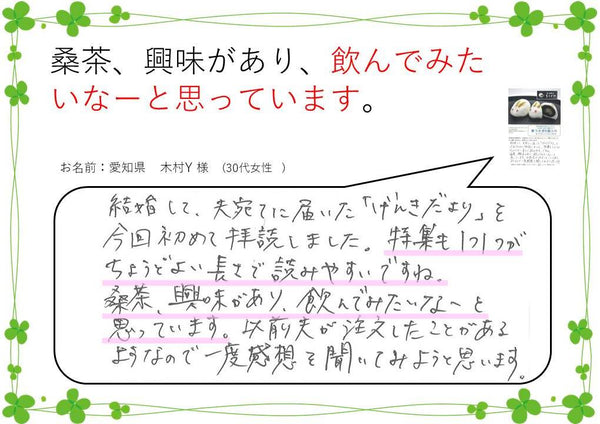 桑茶、興味があり、飲んでみた
いなーと思っています。
お名前：愛知県　木村Y 様　（30代女性　）
結婚して、夫宛てに届いた「げんきだより」を
今回初めて拝読しました。特集も1つ1つが
ちょうどよい長さで読みやすいですね。
桑茶、興味があり、飲んでみたいな〜と
思っています。以前夫が注文したことがある
ようなので一度感想を聞いてみようと思います。